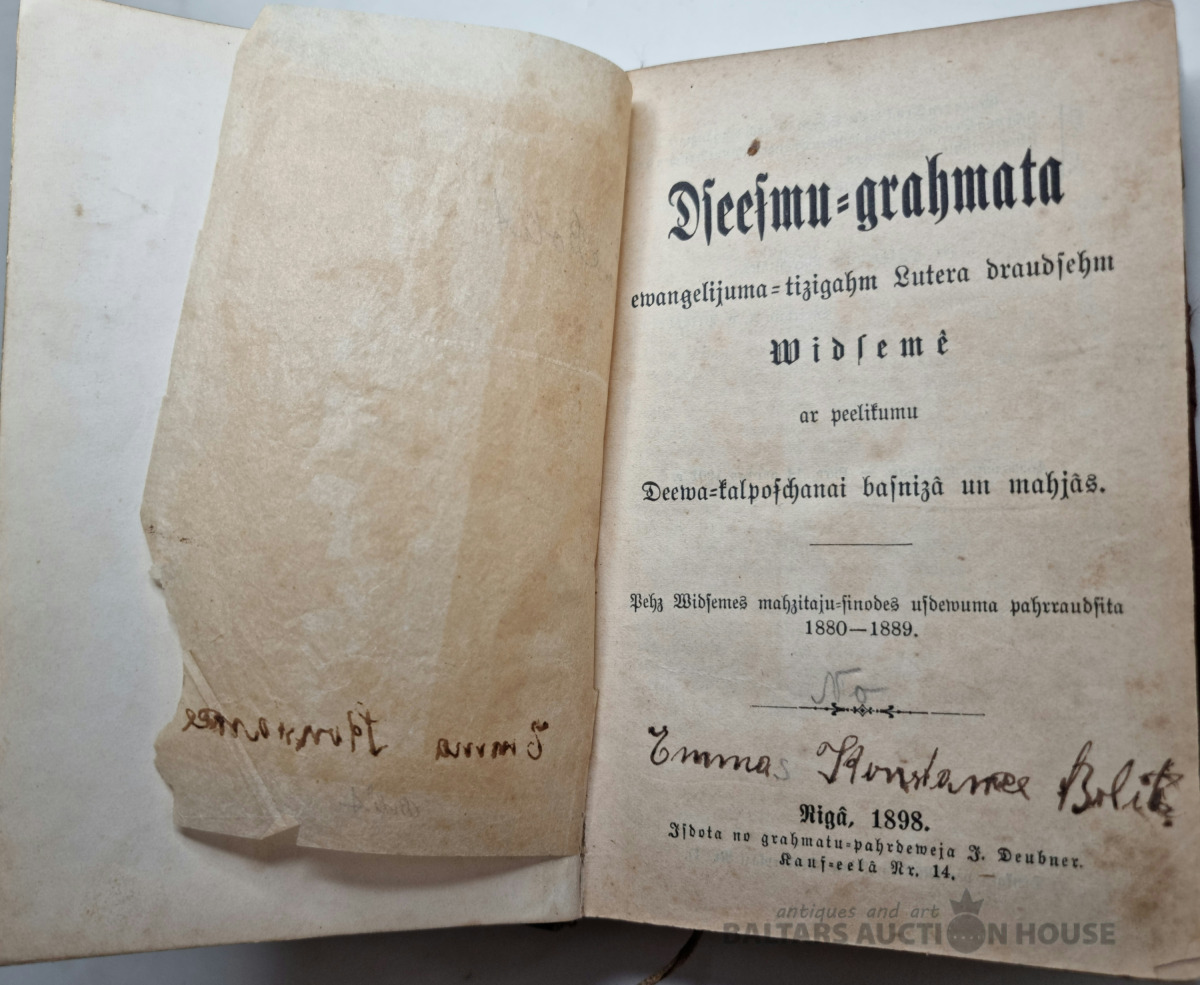 Dſeeſmu-grahmata
ewangelijuma-tizigahm Lutera draudſehm
Widſemê
ar peelikumu
Deewa-kalpoſchanai baſnizâ un mahjâs.
Pehz Widſemes mahzitaju-ſinodes uſdewuma pahrraudſita
1880—1889.
No
Emmas Konstance
Rigâ, 1898.
Iſdota no grahmatu-pahrdeweja J. Deubner.
Kauf-eelâ Nr. 14.
antiques and art
BALTARS AUCTION HOUSE